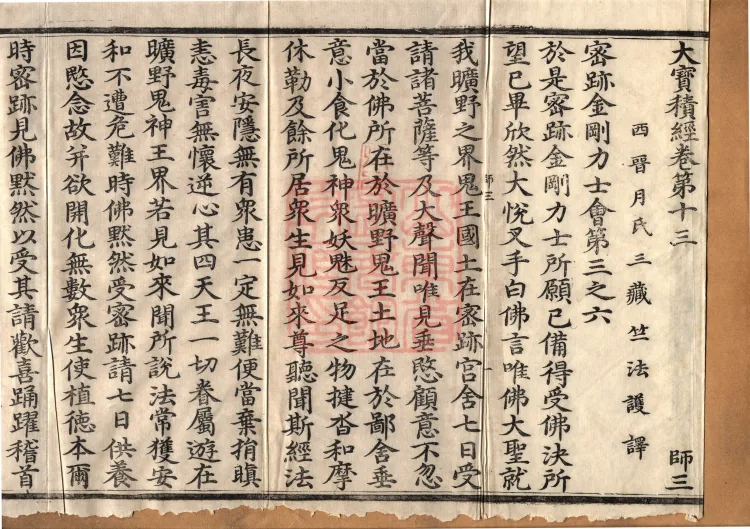 大寶積經卷第十三 師三
西晉月氏三藏竺法護譯
密跡金剛力士會第三之六
於是密跡金剛力士所願已備得受佛決所
望已畢欣然大悅叉手白佛言唯佛大聖就
我曠野之界鬼王國土在密跡宮舍七日受
師三
請諸菩薩等及大聲聞唯見垂愍顧意不忽
當於佛所在於曠野鬼王土地在於鄙舍垂
意小食化鬼神眾妖魅反足之物揵沓和摩
休勒及餘所居眾生見如來尊聽聞斯經法
長夜安隱無有眾患一定無難便當棄捐瞋
恚毒害無懷逆心其四天王一切眷屬遊在
曠野鬼神王界若見如來聞所說法常獲安
和不遭危難時佛默然受密跡請七日供養
因愍念故并欲開化無數眾生使植德本爾
時密跡見佛默然以受其請歡喜踊躍稽首